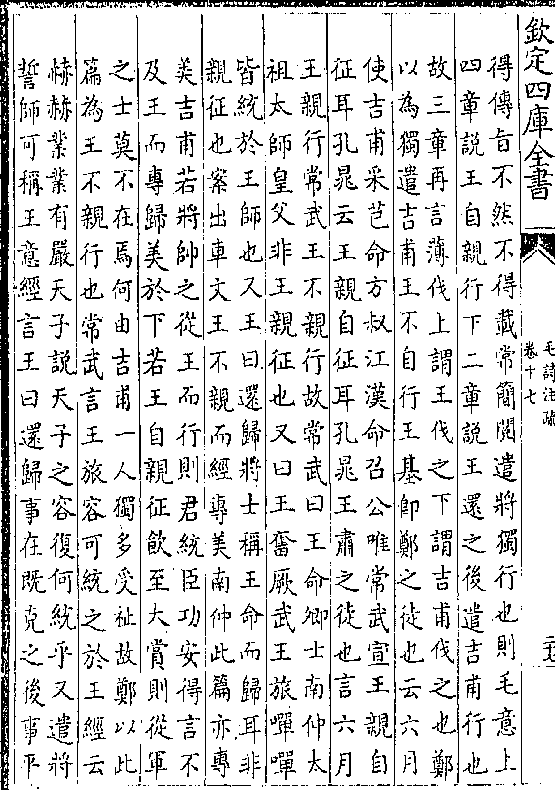 欽定四庫全書
毛詩注疏
卷十七
得傳旨不然不得載常簡閱遣將獨行也則毛意上
四章説王自親行下二章説王還之後遣吉甫行也
故三章再言薄伐上謂王伐之下謂吉甫伐之也鄭
以為獨遣吉甫王不自行王基即鄭之徒也云六月
使吉甫采芑命方叔江漢命召公唯常武宣王親自
征耳孔晁云王親自征耳孔晁王肅之徒也言六月
王親行常武王不親行故常武曰王命卿士南仲太
祖太師皇父非王親征也又曰王奮厥武王旅嘽嘽
皆統於王師也又王曰還歸將士稱王命而歸耳非
親征也案出車文王不親而經專美南仲此篇亦專
美吉甫若將帥之從王而行則君統臣功安得言不
及王而專歸美於下若王自親征飲至大賞則從軍
之士莫不在焉何由吉甫一人獨多受祉故鄭以此
篇為王不親行也常武言王旅容可統之於王經云
赫赫業業有嚴天子説天子之容復何統乎又遣將
誓師可稱王意經言王曰還歸事在既克之後事平